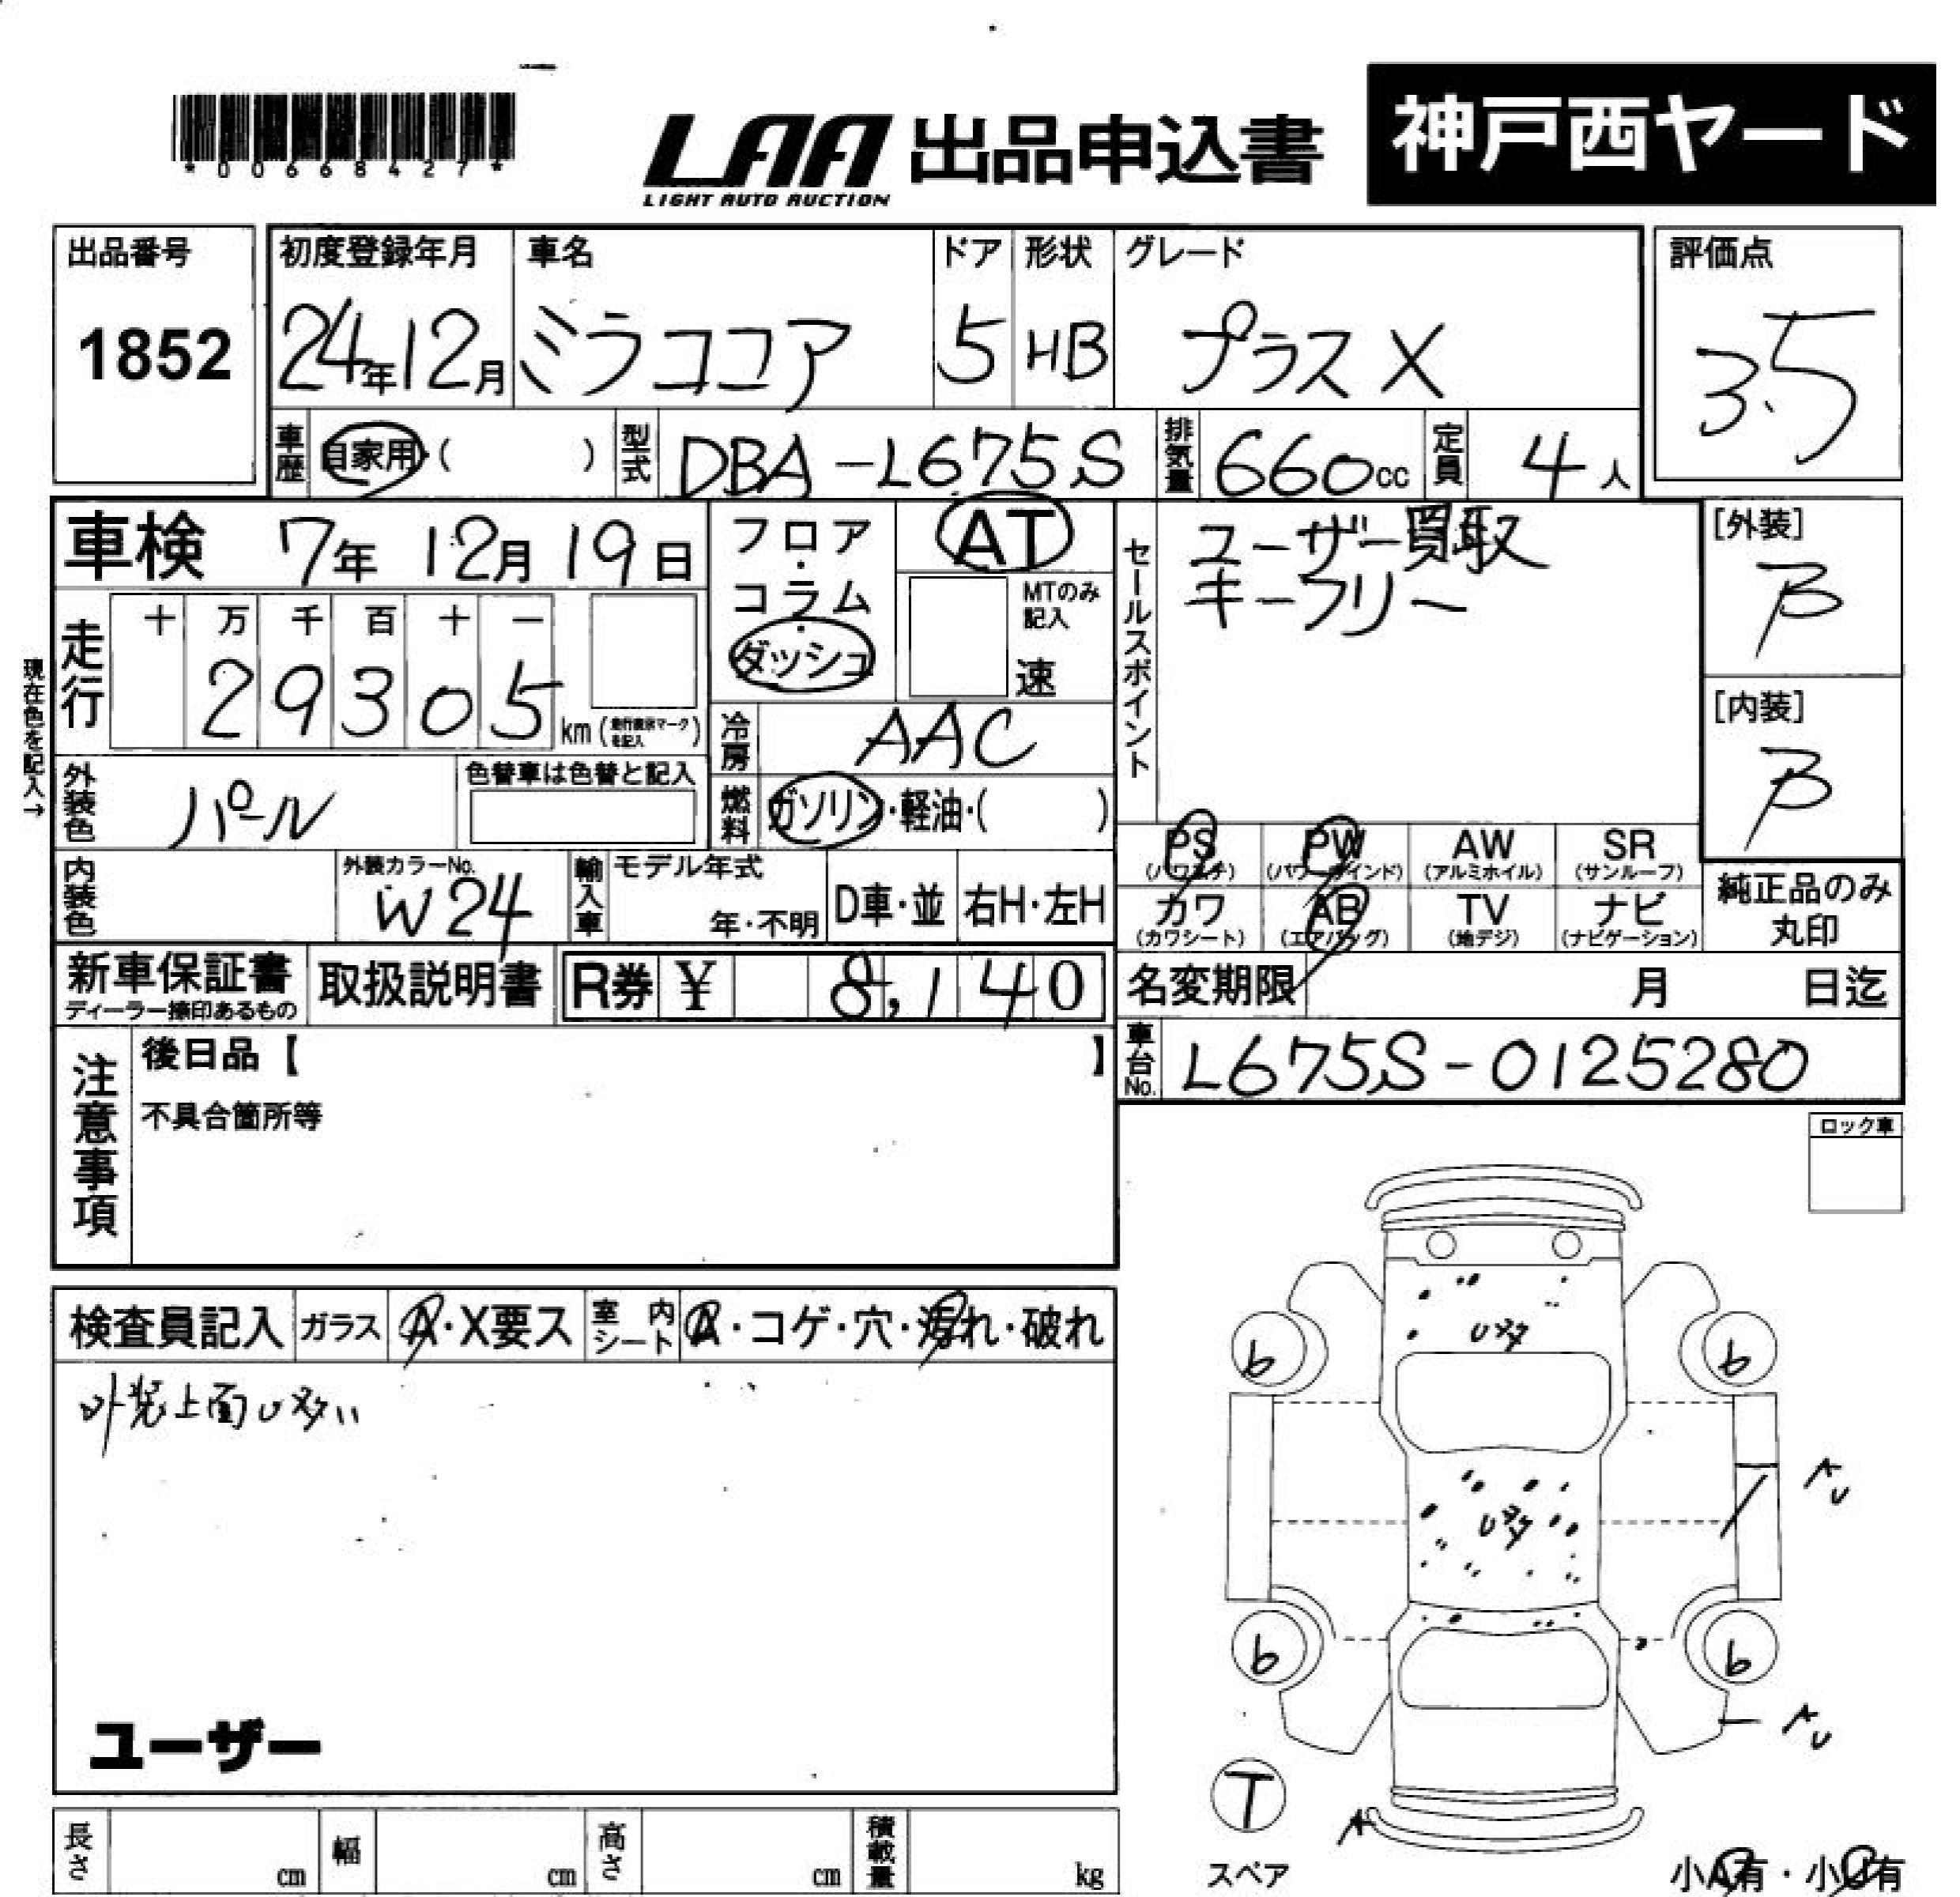 *00668427*
LAA 出品申込書
LIGHT AUTO AUCTION
神戸西ヤード
出品番号
1852
初度登録年月
24年12月
車名
ミラココア
ドア
5
形状
HB
グレード
プラスX
評価点
3.5
車歴 自家用・( )
型式 DBA-L675S
排気量 660cc
定員 4人
車検 7年 12月 19日
フロア・コラム・ダッシュ
AT
MTのみ記入
速
セールスポイント
ユーザー買取
キーフリー
[外装]
B
[内装]
B
現在色を記入→
走行
十 万 千 百 十 一
29305km(走行表示マークを記入)
冷房 AAC
外装色 パール
色替車は色替と記入
燃料 ガソリン・軽油・( )
内装色
外装カラーNo.
W24
輸入車
モデル年式
年・不明
D車・並
右H・左H
PS (パワステ)
PW (パワーウインド)
AW (アルミホイル)
SR (サンルーフ)
カワ (カワシート)
AB (エアバッグ)
TV (地デジ)
ナビ (ナビゲーション)
純正品のみ
丸印
新車保証書
ディーラー捺印あるもの
取扱説明書
R券 ¥ 8,140
名変期限 月 日迄
車台No. L675S-0125280
注意事項
後日品【 】
不具合箇所等
ロック車
検査員記入 ガラス A・X要ス 室内シート A・コゲ・穴・汚れ・破れ
外装上面U多い
ユーザー
U多
b b
AU
U多
b b
AU
T
スペア
A
小A有・小U有
長さ cm 幅 cm 高さ cm 積載量 kg